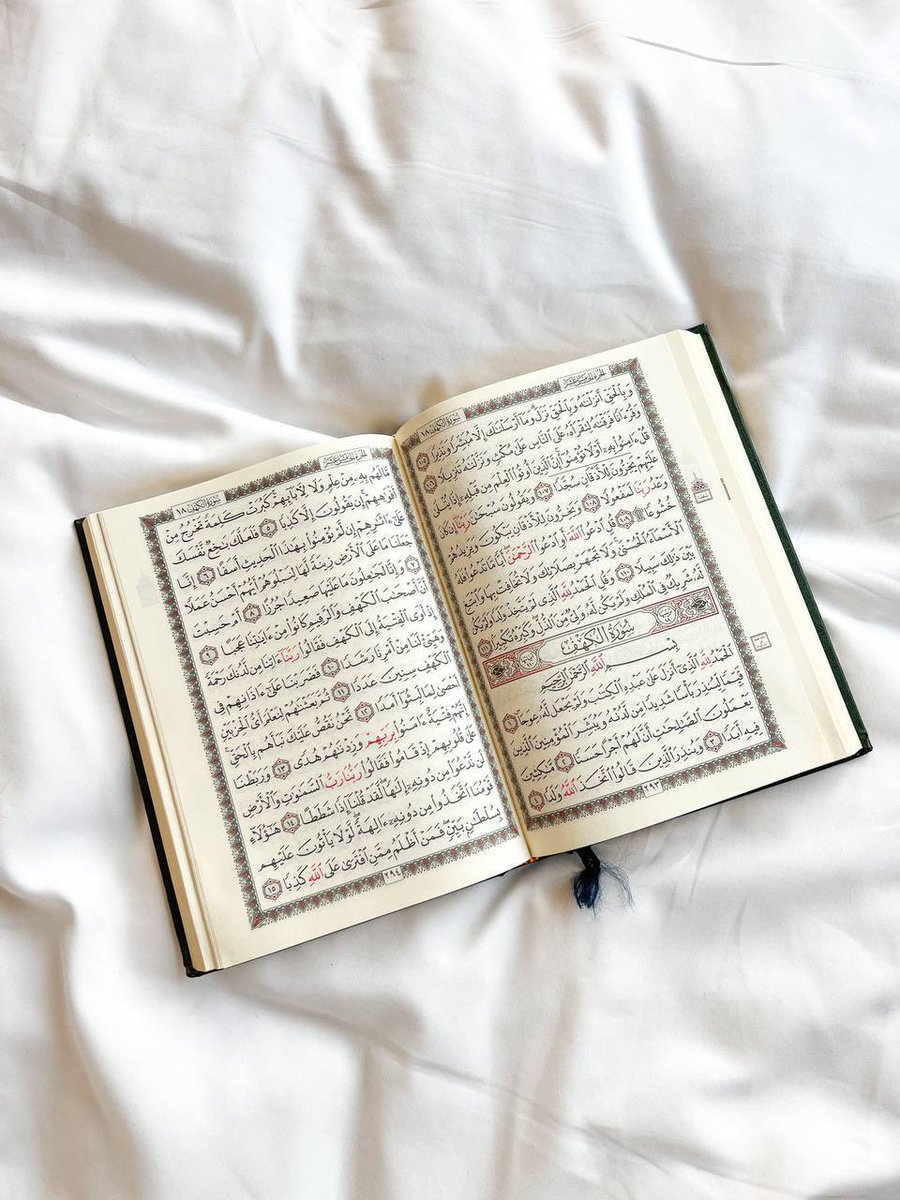 الجزء الخامس عشر
سورة الكهف ١٨
وَبِٱلْحَقِّ أَنزَلْنَٰهُ وَبِٱلْحَقِّ نَزَلَ ۗ وَمَآ أَرْسَلْنَٰكَ إِلَّا مُبَشِّرًا وَنَذِيرًا ١٠٥
وَقُرْءَانًا فَرَقْنَٰهُ لِتَقْرَأَهُۥ عَلَى ٱلنَّاسِ عَلَىٰ مُكْثٍ وَنَزَّلْنَٰهُ تَنزِيلًا ١٠٦
قُلْ ءَامِنُوا۟ بِهِۦٓ أَوْ لَا تُؤْمِنُوٓا۟ ۚ إِنَّ ٱلَّذِينَ أُوتُوا۟ ٱلْعِلْمَ مِن قَبْلِهِۦٓ إِذَا يُتْلَىٰ
عَلَيْهِمْ يَخِرُّونَ لِلْأَذْقَانِ سُجَّدًا ١٠٧ وَيَقُولُونَ سُبْحَٰنَ رَبِّنَآ إِن كَانَ
وَعْدُ رَبِّنَا لَمَفْعُولًا ١٠٨ وَيَخِرُّونَ لِلْأَذْقَانِ يَبْكُونَ وَيَزِيدُهُمْ
خُشُوعًا ۩ ١٠٩ قُلِ ٱدْعُوا۟ ٱللَّهَ أَوِ ٱدْعُوا۟ ٱلرَّحْمَٰنَ ۖ أَيًّا مَّا تَدْعُوا۟ فَلَهُ
ٱلْأَسْمَآءُ ٱلْحُسْنَىٰ ۚ وَلَا تَجْهَرْ بِصَلَاتِكَ وَلَا تُخَافِتْ بِهَا وَٱبْتَغِ
بَيْنَ ذَٰلِكَ سَبِيلًا ١١٠ وَقُلِ ٱلْحَمْدُ لِلَّهِ ٱلَّذِى لَمْ يَتَّخِذْ وَلَدًا وَلَمْ يَكُن
لَّهُۥ شَرِيكٌ فِى ٱلْمُلْكِ وَلَمْ يَكُن لَّهُۥ وَلِىٌّ مِّنَ ٱلذُّلِّ ۖ وَكَبِّرْهُ تَكْبِيرًۢا ١١١
سُورَةُ الكَهْفِ
بِسْمِ ٱللَّهِ ٱلرَّحْمَٰنِ ٱلرَّحِيمِ
ٱلْحَمْدُ لِلَّهِ ٱلَّذِىٓ أَنزَلَ عَلَىٰ عَبْدِهِ ٱلْكِتَٰبَ وَلَمْ يَجْعَل لَّهُۥ عِوَجَا ١
قَيِّمًا لِّيُنذِرَ بَأْسًا شَدِيدًا مِّن لَّدُنْهُ وَيُبَشِّرَ ٱلْمُؤْمِنِينَ ٱلَّذِينَ
يَعْمَلُونَ ٱلصَّٰلِحَٰتِ أَنَّ لَهُمْ أَجْرًا حَسَنًا ٢ مَّٰكِثِينَ
فِيهِ أَبَدًا ٣ وَيُنذِرَ ٱلَّذِينَ قَالُوا۟ ٱتَّخَذَ ٱللَّهُ وَلَدًا ٤
٢٩٣
الجزء الخامس عشر
سورة الكهف ١٨
مَّا لَهُم بِهِۦ مِنْ عِلْمٍ وَلَا لِءَابَآئِهِمْ ۚ كَبُرَتْ كَلِمَةً تَخْرُجُ مِنْ
أَفْوَٰهِهِمْ ۚ إِن يَقُولُونَ إِلَّا كَذِبًا ٥ فَلَعَلَّكَ بَٰخِعٌ نَّفْسَكَ
عَلَىٰٓ ءَاثَٰرِهِمْ إِن لَّمْ يُؤْمِنُوا۟ بِهَٰذَا ٱلْحَدِيثِ أَسَفًا ٦ إِنَّا
جَعَلْنَا مَا عَلَى ٱلْأَرْضِ زِينَةً لَّهَا لِنَبْلُوَهُمْ أَيُّهُمْ أَحْسَنُ عَمَلًا
٧ وَإِنَّا لَجَٰعِلُونَ مَا عَلَيْهَا صَعِيدًا جُرُزًا ٨ أَمْ حَسِبْتَ
أَنَّ أَصْحَٰبَ ٱلْكَهْفِ وَٱلرَّقِيمِ كَانُوا۟ مِنْ ءَايَٰتِنَا عَجَبًا ٩
إِذْ أَوَى ٱلْفِتْيَةُ إِلَى ٱلْكَهْفِ فَقَالُوا۟ رَبَّنَآ ءَاتِنَا مِن لَّدُنكَ رَحْمَةً
وَهَيِّئْ لَنَا مِنْ أَمْرِنَا رَشَدًا ١٠ فَضَرَبْنَا عَلَىٰٓ ءَاذَانِهِمْ فِى
ٱلْكَهْفِ سِنِينَ عَدَدًا ١١ ثُمَّ بَعَثْنَٰهُمْ لِنَعْلَمَ أَىُّ ٱلْحِزْبَيْنِ
أَحْصَىٰ لِمَا لَبِثُوٓا۟ أَمَدًا ١٢ نَّحْنُ نَقُصُّ عَلَيْكَ نَبَأَهُم بِٱلْحَقِّ ۚ
إِنَّهُمْ فِتْيَةٌ ءَامَنُوا۟ بِرَبِّهِمْ وَزِدْنَٰهُمْ هُدًى ١٣ وَرَبَطْنَا
عَلَىٰ قُلُوبِهِمْ إِذْ قَامُوا۟ فَقَالُوا۟ رَبُّنَا رَبُّ ٱلسَّمَٰوَٰتِ وَٱلْأَرْضِ
لَن نَّدْعُوَا۟ مِن دُونِهِۦٓ إِلَٰهًا ۖ لَّقَدْ قُلْنَآ إِذًا شَطَطًا ١٤ هَٰٓؤُلَآءِ
قَوْمُنَا ٱتَّخَذُوا۟ مِن دُونِهِۦٓ ءَالِهَةً ۖ لَّوْلَا يَأْتُونَ عَلَيْهِم
بِسُلْطَٰنٍۭ بَيِّنٍ ۖ فَمَنْ أَظْلَمُ مِمَّنِ ٱفْتَرَىٰ عَلَى ٱللَّهِ كَذِبًا ١٥
٢٩٤